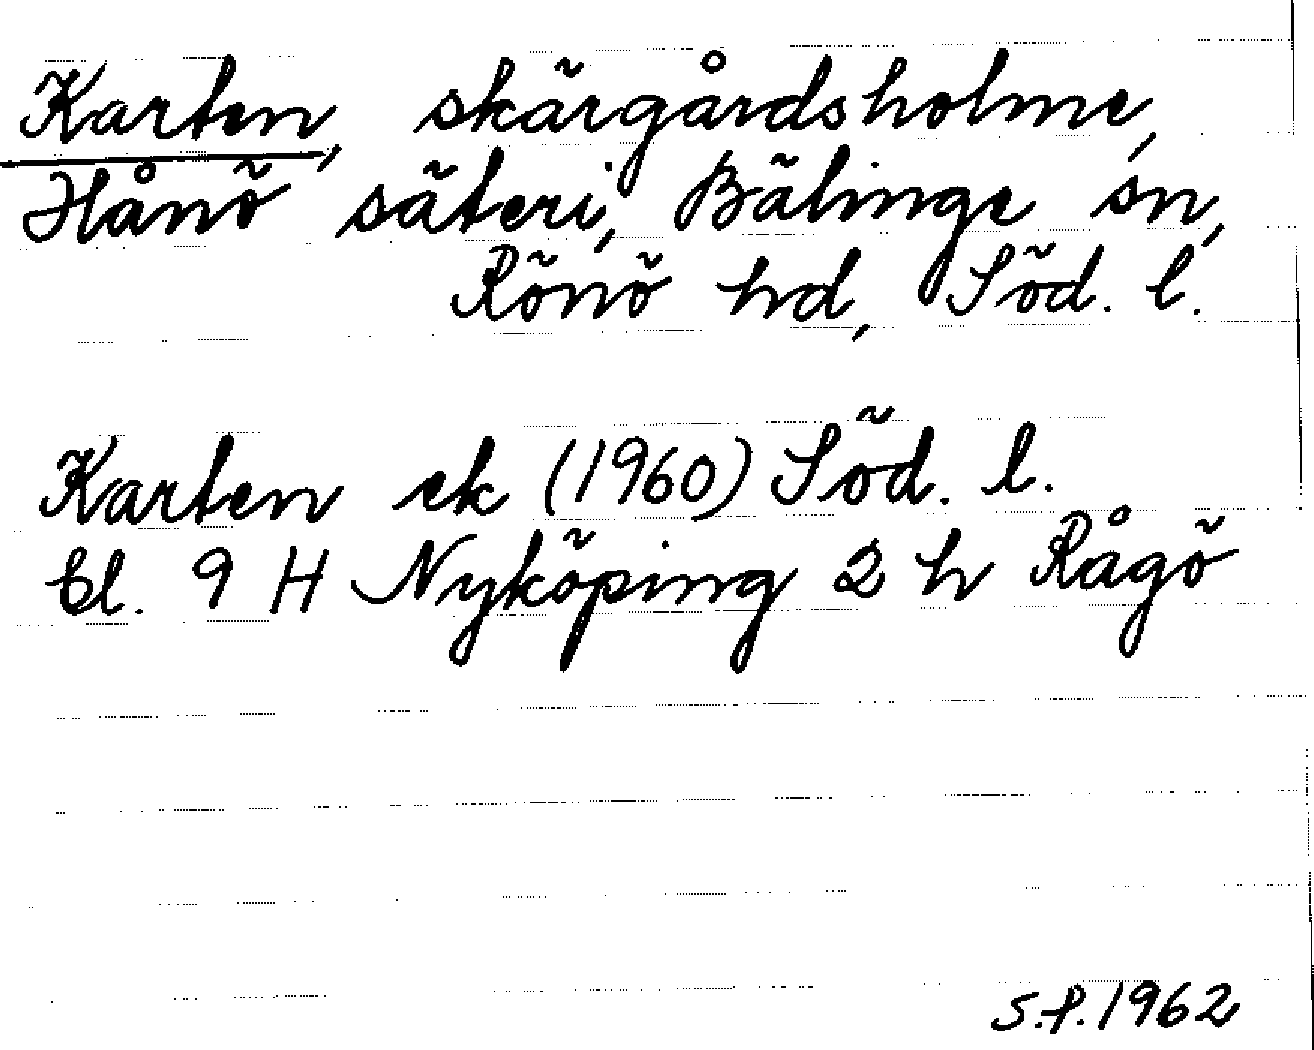 Karten, skärgårdsholme,
Hånö säteri, Bälinge sn,
Rönö hd, Söd. l.
Karten ek (1960) Söd. l.
bl. 9 H Nyköping 2 h Rågö
S.P. 1962